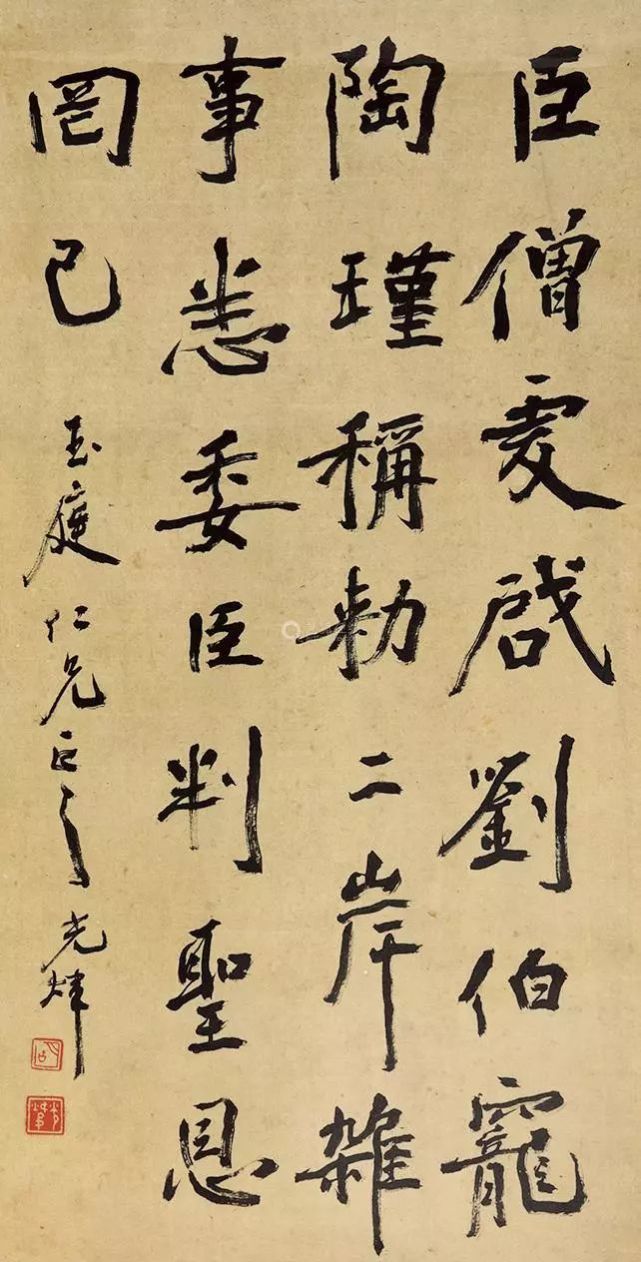 臣僧虔啓劉伯寵
陶瑾稱勑二岸雜
事悉委臣判聖恩
罔已
玉庭仁兄正之 光煒